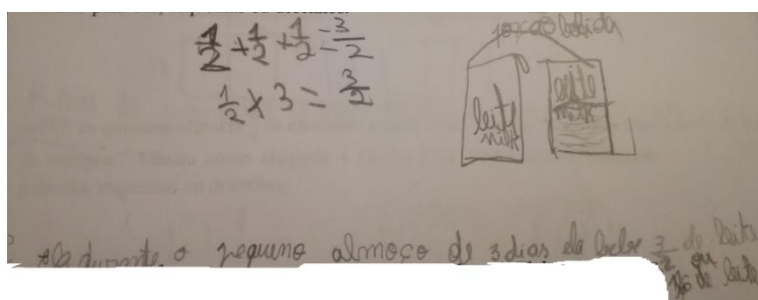 1/2 + 1/2 + 1/2 = 3/2
1/2 × 3 = 3/2
porção bebida
leite
milk
leite
milk
durante o pequeno almoço de 3 dias ela bebe 3/2 de leite
ou
de leite